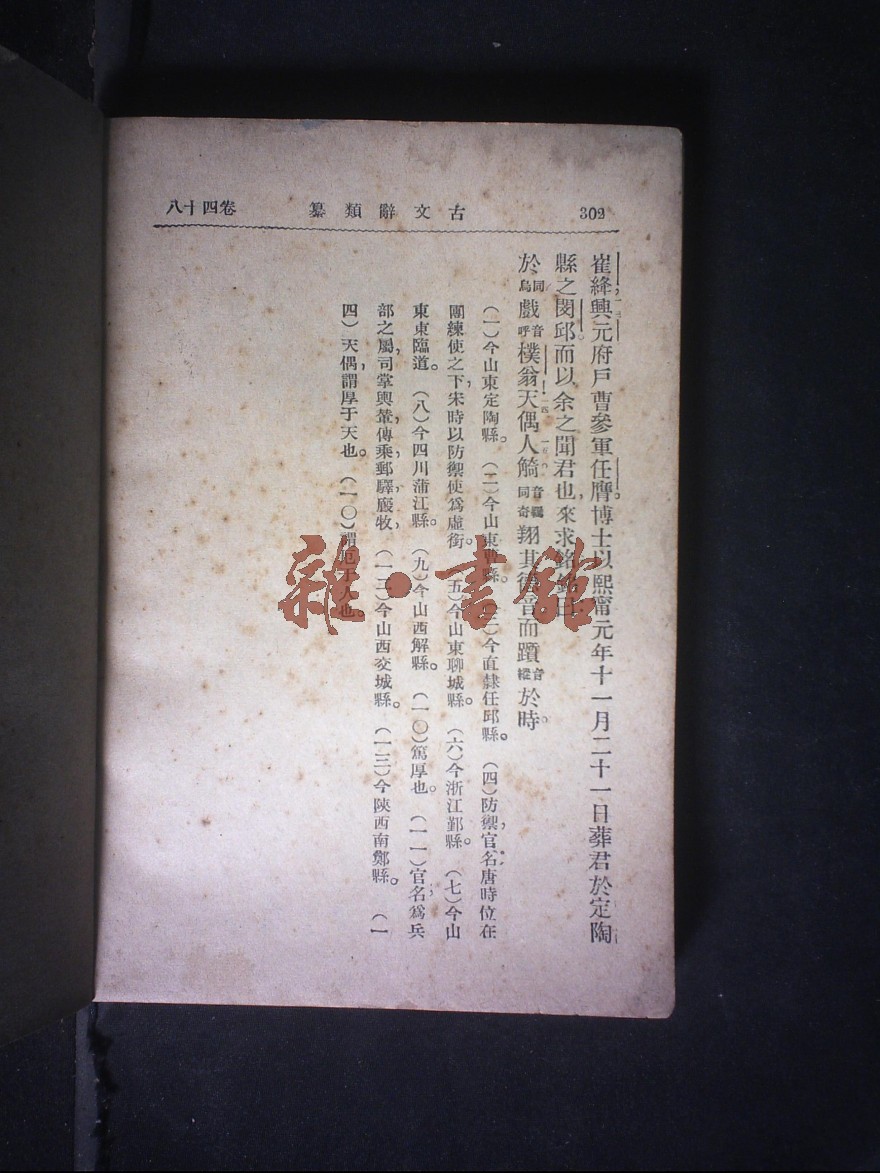 302
古文辭類纂
卷四十八
崔絳，興元府戶曹參軍任膺。博士以熙甯元年十一月二十一日葬君於定陶
縣之閔邱。而以余之聞君也，來求銘銘曰
於同烏戲音呼樸翁天偶人觭音同奇翔其德音而躓音於時。
（一）今山東定陶縣。（二）今山東曹縣。（三）今直隸任邱縣。（四）防禦，官名，唐時位在
團練使之下，宋時以防禦使爲虛銜。（五）今山東聊城縣。（六）今浙江鄞縣。（七）今山
東東臨道。（八）今四川蒲江縣。（九）今山西解縣。（一〇）篤厚也。（一一）官名，爲兵
部之屬，司掌輿輦，傳乘，郵驛，廄牧，（一二）今山西交城縣。（一三）今陝西南鄭縣。（一
四）天偶，謂厚于天也。（一〇）謂厄于人也。
雜·書館